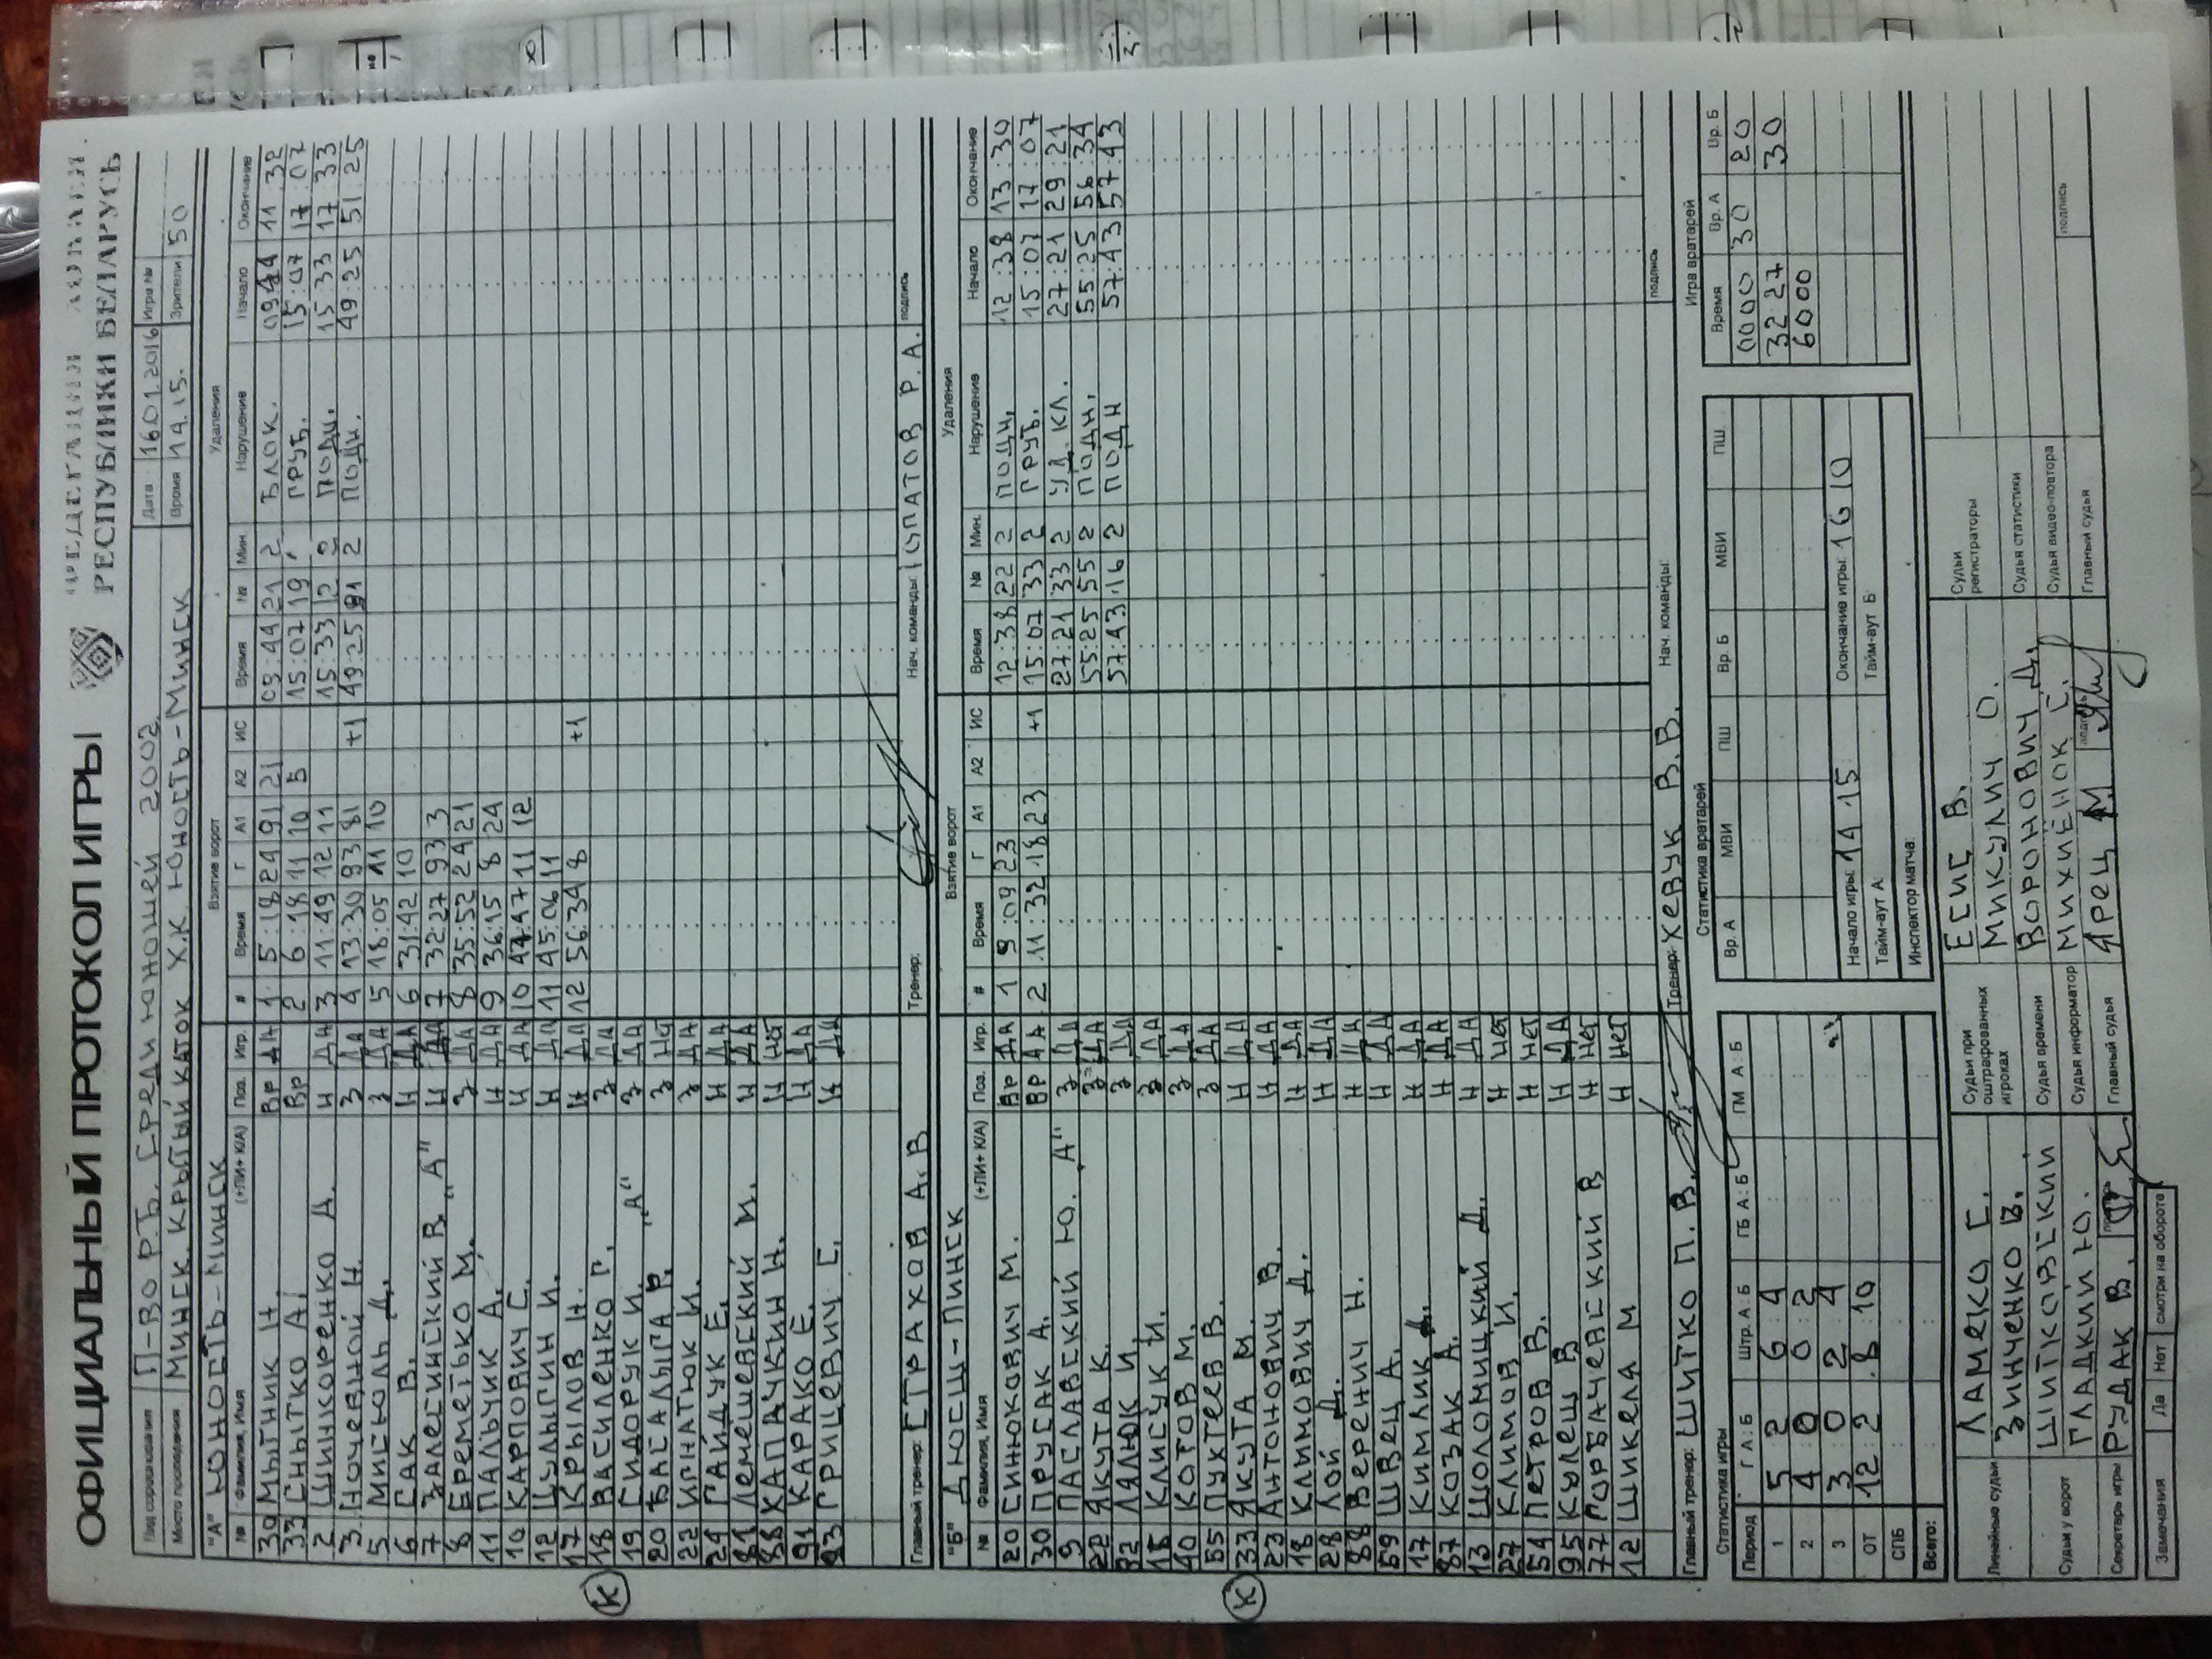 ОФИЦИАЛЬНЫЙ ПРОТОКОЛ ИГРЫ
РЕСПУБЛИКИ БЕЛАРУСЬ
Вид соревнования П-ВО Р.Б. СРЕДИ ЮНОШЕЙ 2002 Дата 16.01.2016 Игра №
Место проведения МИНСК. КРЫТЫЙ КАТОК Х.К. ЮНОСТЬ-МИНСК Время 14.15. Зрители 50
"А" ЮНОСТЬ-МИНСК Взятие ворот Удаления
№ Фамилия, Имя (+ЛИ+ К/А) Поз. Игр. # Время Г А1 А2 ИС Время № Мин. Нарушение Начало Окончание
30 МЫТНИК Н. Вр ДА 1 5:18 24 91 21 09:44 21 2 БЛОК. 09:44 11:32
33 СНЫТКО А. Вр 2 6:18 11 10 5 15:07 19 ГРУБ. 15:07 17:07
2 ШИНКОРЕНКО А. Н ДА 3 11:49 12 11 15:33 12 2 ПОДН. 15:33 17:33
3 НОЧЕВНОЙ Н. З ДА 4 13:30 93 81 +1 49:25 91 2 ПОДН. 49:25 51:25
5 МИСЮЛЬ Д. З ДА 5 18:05 11 10
6 САК В. Н ДА 6 31:42 10
7 ЗАЛЕСИНСКИЙ В. "А" Н ДА 7 32:27 93 3
8 ЕРЕМЕТЬКО М. З ДА 8 35:52 24 21
11 ПАЛЬЧИК А. Н ДА 9 36:15 8 24
10 КАРПОВИЧ С. Н ДА 10 44:47 11 12
12 ЦУЛЫГИН И. Н ДА 11 45:06 11
17 КРЫЛОВ Н. Н ДА 12 56:34 8 +1
К 18 ВАСИЛЕНКО Г. З ДА
19 СИДОРУК И. "А" З ДА
20 БАСАЛЫГА Р. З Нет
22 ИГНАТЮК И. З ДА
24 ГАЙДУК Е. Н ДА
81 ЛЕМЕШЕВСКИЙ И. Н ДА
88 ХАПАЧУКИН Н. Н Нет
91 КАРАКО Е. Н ДА
93 ГРИЦЕВИЧ С. Н ДА
Главный тренер: СТРАХОВ А.В Тренер: Нач. команды: ИГНАТОВ Р.А. подпись
"Б" ДЮСШ-ПИНСК Взятие ворот Удаления
№ Фамилия, Имя (+ЛИ+ К/А) Поз. Игр. # Время Г А1 А2 ИС Время № Мин. Нарушение Начало Окончание
20 СИНЮКОВИЧ М. Вр ДА 1 9:09 23 12:38 22 2 ПОДН. 12:38 13:30
30 ПРУСАК А. Вр ДА 2 11:32 18 23 +1 15:07 33 2 ГРУБ. 15:07 17:07
9 ПАСЛАВСКИЙ Ю. "А" З ДА 27:21 33 2 УД. КЛ. 27:21 29:21
22 ЯКУТА К. З ДА 55:25 55 2 ПОДН. 55:25 56:34
92 ЛЯЛЮК И. З ДА 57:43 16 2 ПОДН 57:43 57:43
15 КЛИСУК И. З ДА
40 КОТОВ М. З ДА
55 ПУХТЕЕВ В. З ДА
К 33 ЯКУТА М. Н ДА
23 АНТОНОВИЧ В. Н ДА
18 КЛИМОВИЧ Д. Н ДА
28 ЛОЙ Д. Н ДА
88 ВЕРЕНИЧ Н. Н ДА
59 ШВЕЦ А. Н ДА
17 КИМЛИК А. Н ДА
87 КОЗАК А. Н ДА
13 ШОЛОМИЦКИЙ Д. Н ДА
27 КЛИМОВ И. Н Нет
54 ПЕТРОВ В. Н Нет
95 КУЛЕШ В Н ДА
77 ГОРБАЧЕВСКИЙ В Н Нет
12 ШИКЕЛА М Н Нет
Главный тренер: ШИТКО П.В. Тренер: ХЕВУК В.В. Нач. команды: подпись
Статистика игры Статистика вратарей Игра вратарей
Период Г А : Б Штр. А : Б ГБ А : Б ГМ А : Б Вр. А МВИ ПШ Вр. Б МВИ ПШ Время Вр. А Вр. Б
1 5 2 6:4 0000 30 20
2 4 0 0:2 3227 30
3 3 0 2:4 6000
ОТ 12 2 8:10 Начало игры: 14 15 Окончание игры: 16 10
СПБ Тайм-аут А: Тайм-аут Б:
Всего: Инспектор матча:
Линейные судьи ЛАМЕКО С. Судьи при оштрафованных игроках ЕСИС В. Судьи регистраторы
ЗИНЧЕНКО В. МИКУЛИЧ О.
Судьи у ворот ШИТКОВСКИЙ Судья времени ВОРОНОВИЧ Д. Судья статистики
ГЛАДКИЙ Ю. Судья информатор МИХИЕНОК С. Судья видео-повтора
Секретарь игры РУДАК В. Главный судья ЯРЕЦ М Главный судья подпись
Замечания Да Нет смотри на обороте